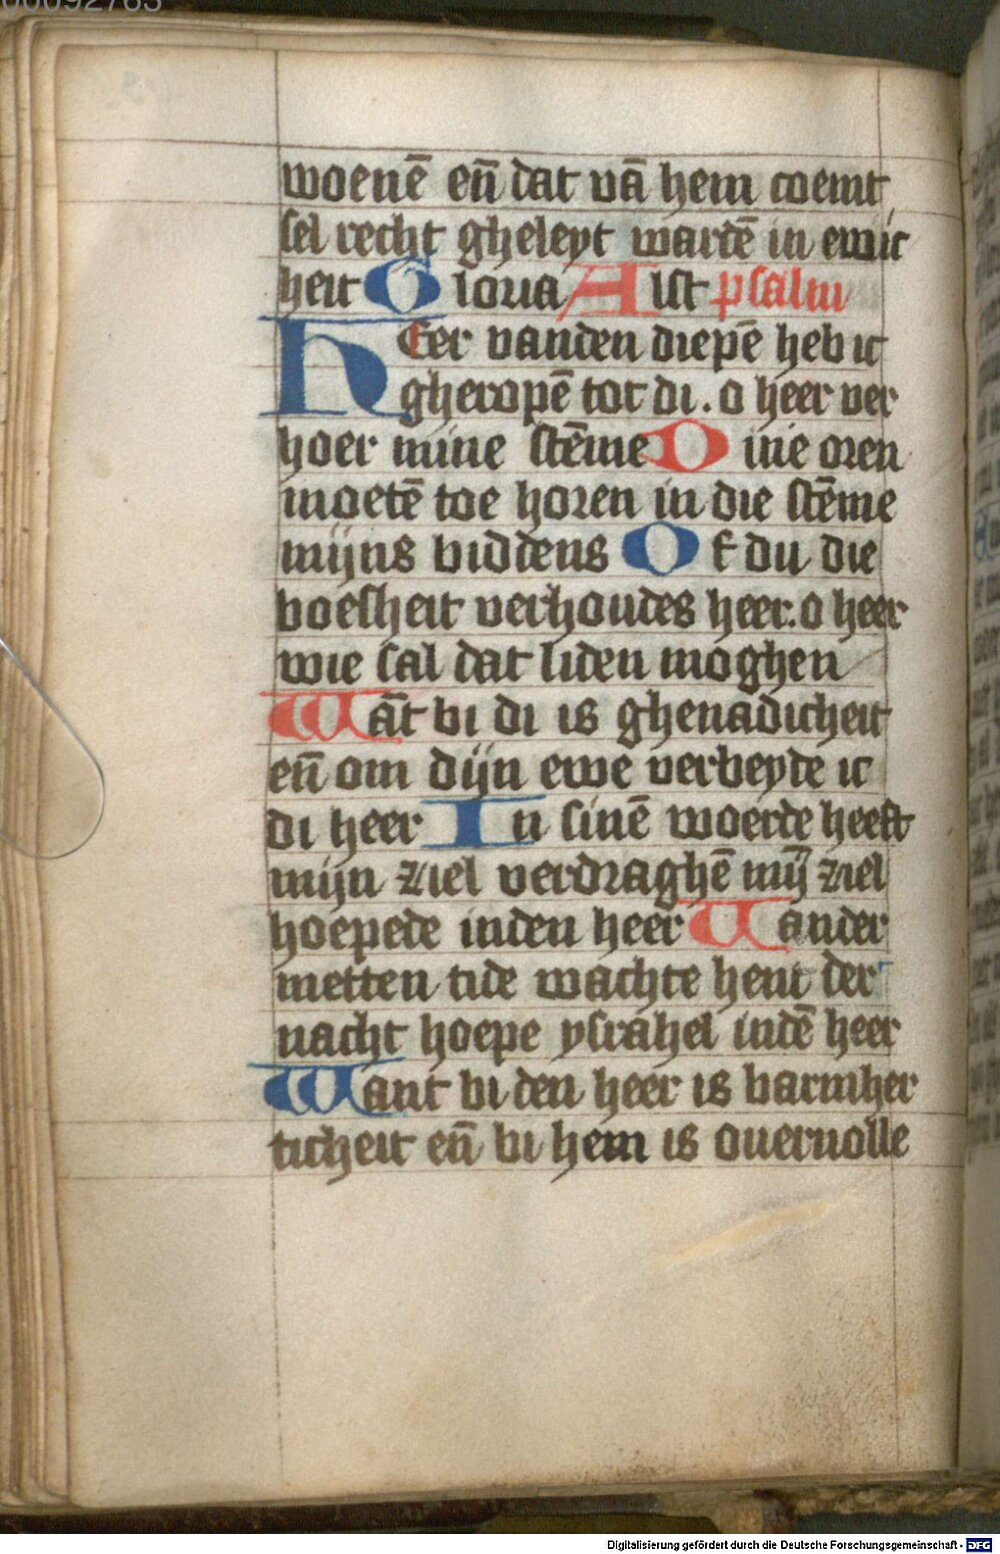 00092763
woenē en̄ dat vā hem coemt
sel recht gheleyt wardē in ewic
heit Gloria Alst psalm
HEer vanden diepē heb ic
gheropē tot di . o heer ver
hoer mine stēme Dinie oren
moetē toe horen in die stēme
mijns biddens Of du die
boesheit verhoudes heer. o heer
wie sal dat liden moghen
Wāt bi di is ghenadicheit
en̄ om dijn ewe verbeyde ic
di heer In sinē woerde heeft
mijn ziel verdraghē mij̄ ziel
hoepede inden heer Vander
metten tide wachte hent der
nacht hoepe ysrahel indē heer
Want bi den heer is barmher
ticheit en̄ bi hem is overvolle
Digitalisierung gefördert durch die Deutsche Forschungsgemeinschaft - DFG